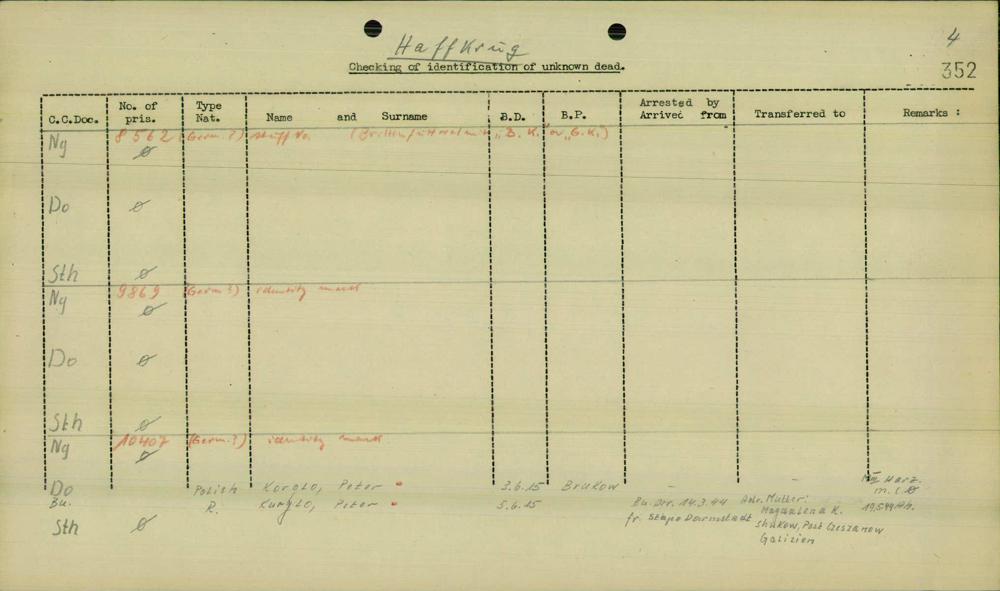 Haffkrug
4
Checking of identification of unknown dead.
352
C.C.Doc. No. of pris. Type Nat. Name and Surname B.D. B.P. Arrested by Arrived from Transferred to Remarks :
Ng 8562 (Germ ?) "B. K." or "G. K.")
ø
Do ø
Sth ø
Ng 9869 (Germ ?) identity mark
ø
Do ø
Sth ø
Ng 10407 (Germ. ?) identity mark
ø
Do Polish Korglo, Peter 3.6.15 Brukow -
Bu. R. Kurylo, Peter 5.6.15 Bu. 14.3.44 fr. Stapo Darmstadt Adr. Mutter: Magdalena K. Post Czeszanow Galizien
Sth ø